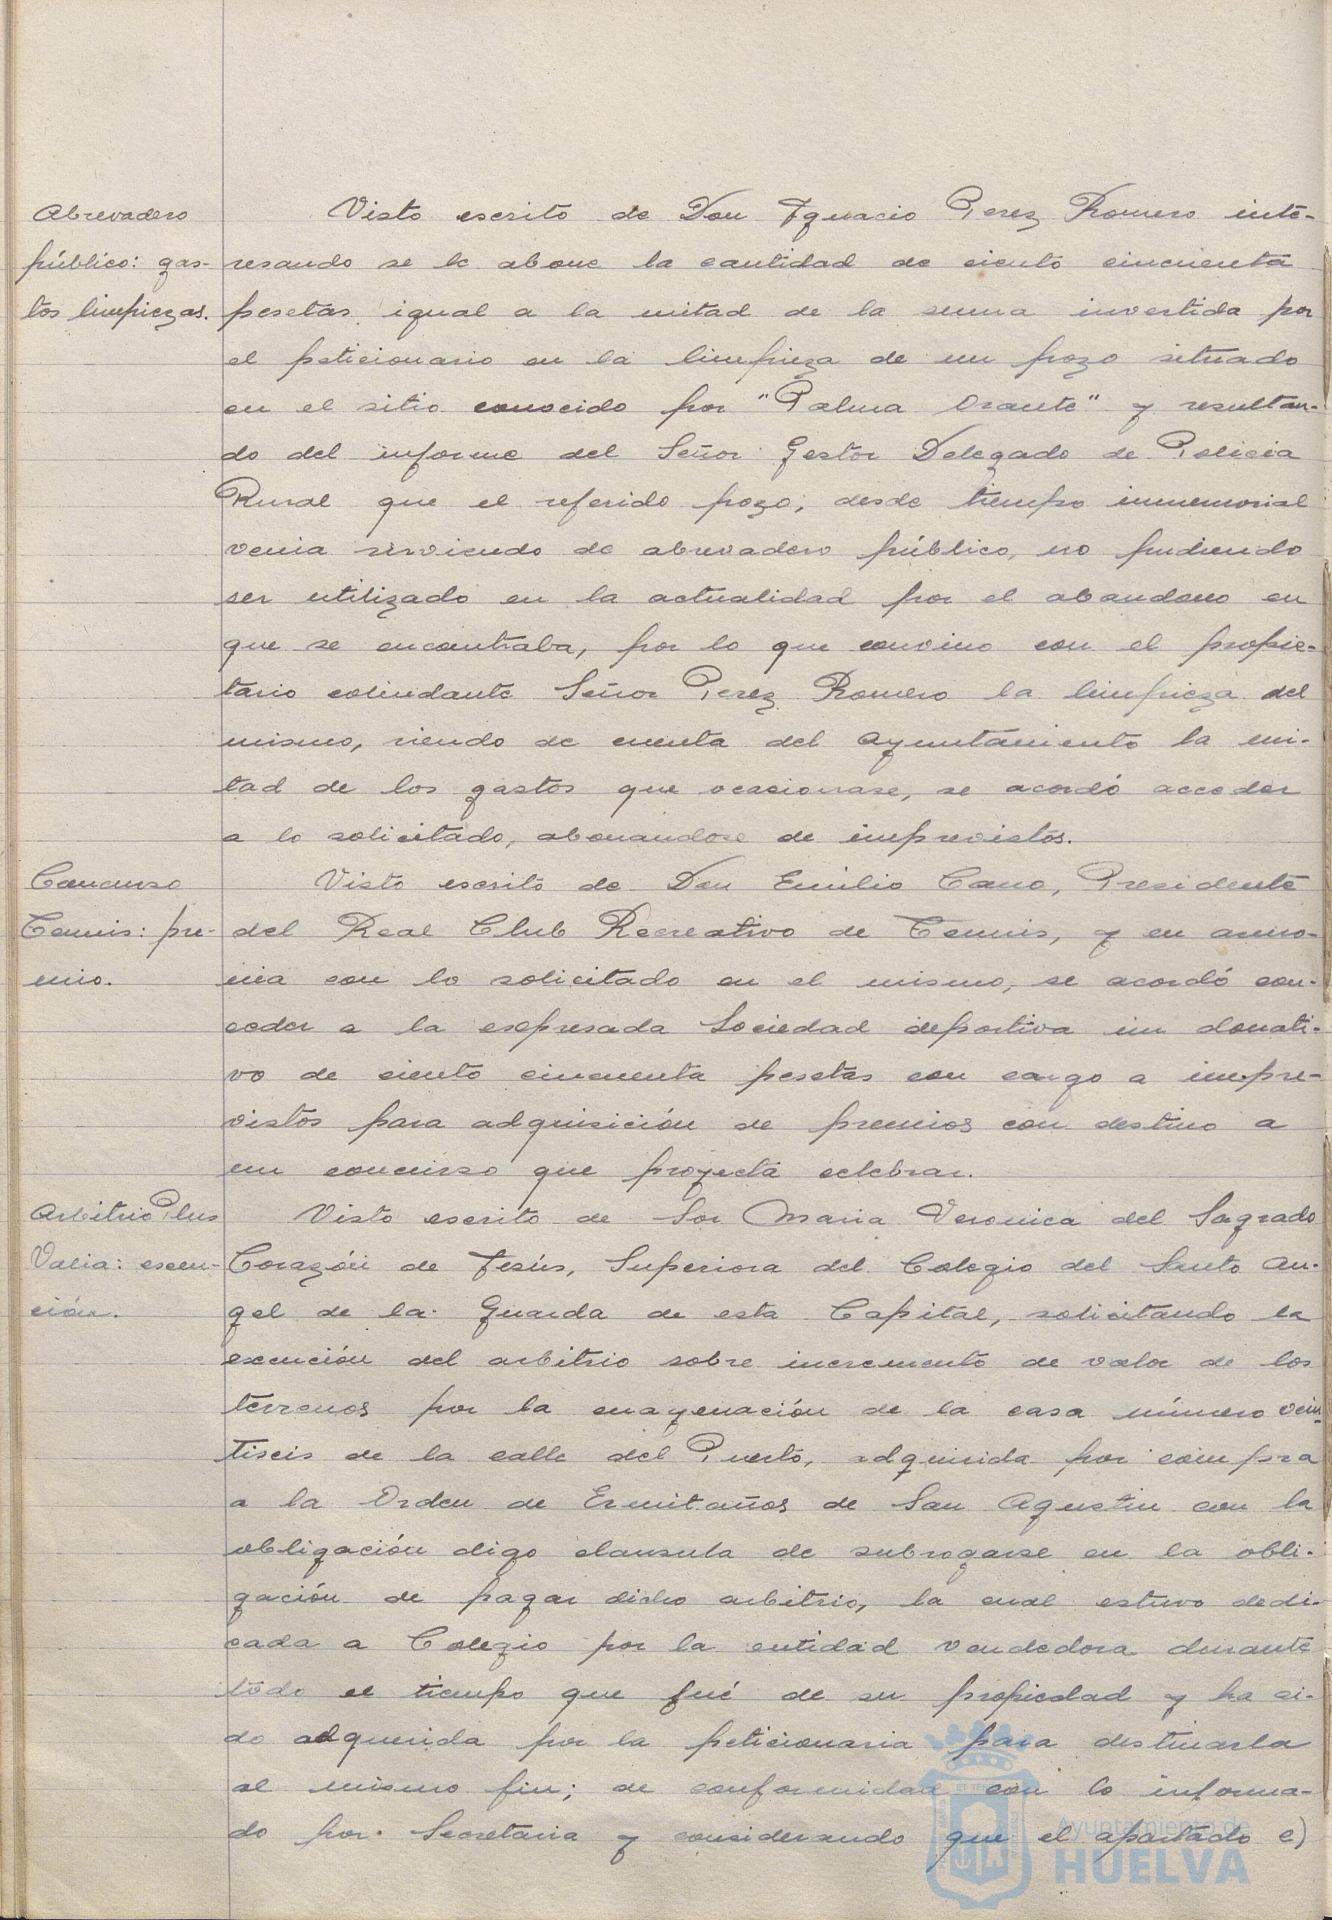 Abrevadero
público: gas-
tos limpiezas.
Visto escrito de Don Ignacio Perez Romero inte-
resando se le abone la cantidad de ciento cincuenta
pesetas igual a la mitad de la suma invertida por
el peticionario en la limpieza de un pozo situado
en el sitio conocido por "Palma Orante" y resultan-
do del informe del Señor Gestor Delegado de Policia
Rural que el referido pozo, desde tiempo inmemorial
venia sirviendo de abrevadero público, no pudiendo
ser utilizado en la actualidad por el abandono en
que se encontraba, por lo que convino con el propie-
tario colindante Señor Perez Romero la limpieza del
mismo, siendo de cuenta del Ayuntamiento la mi-
tad de los gastos que ocasionase, se acordó acceder
a lo solicitado, abonandose de imprevistos.
Concurso
Tennis: pre-
mio.
Visto escrito de Don Emilio Cano, Presidente
del Real Club Recreativo de Tennis, y en armo-
nia con lo solicitado en el mismo, se acordó con-
ceder a la expresada Sociedad deportiva un donati-
vo de ciento cincuenta pesetas con cargo a impre-
vistos para adquisición de premios con destino a
un concurso que proyecta celebrar.
Arbitrio Plus
Valia: exen-
ción.
Visto escrito de Sor Maria Veronica del Sagrado
Corazón de Jesús, Superiora del Colegio del Santo An-
gel de la Guarda de esta Capital, solicitando la
exención del arbitrio sobre incremento de valor de los
terrenos por la enagenación de la casa número vein-
tiseis de la calle del Puerto, adquirida por compra
a la Orden de Ermitaños de San Agustin con la
obligación digo clausula de subrogarse en la obli-
gación de pagar dicho arbitrio, la cual estuvo dedi-
cada a Colegio por la entidad vendedora durante
todo el tiempo que fué de su propiedad y ha si-
do adquerida por la peticionaria para destinarla
al mismo fin; de conformidad con lo informa-
do por Secretaria y considerando que el apartado c)
Ayuntamiento de
HUELVA